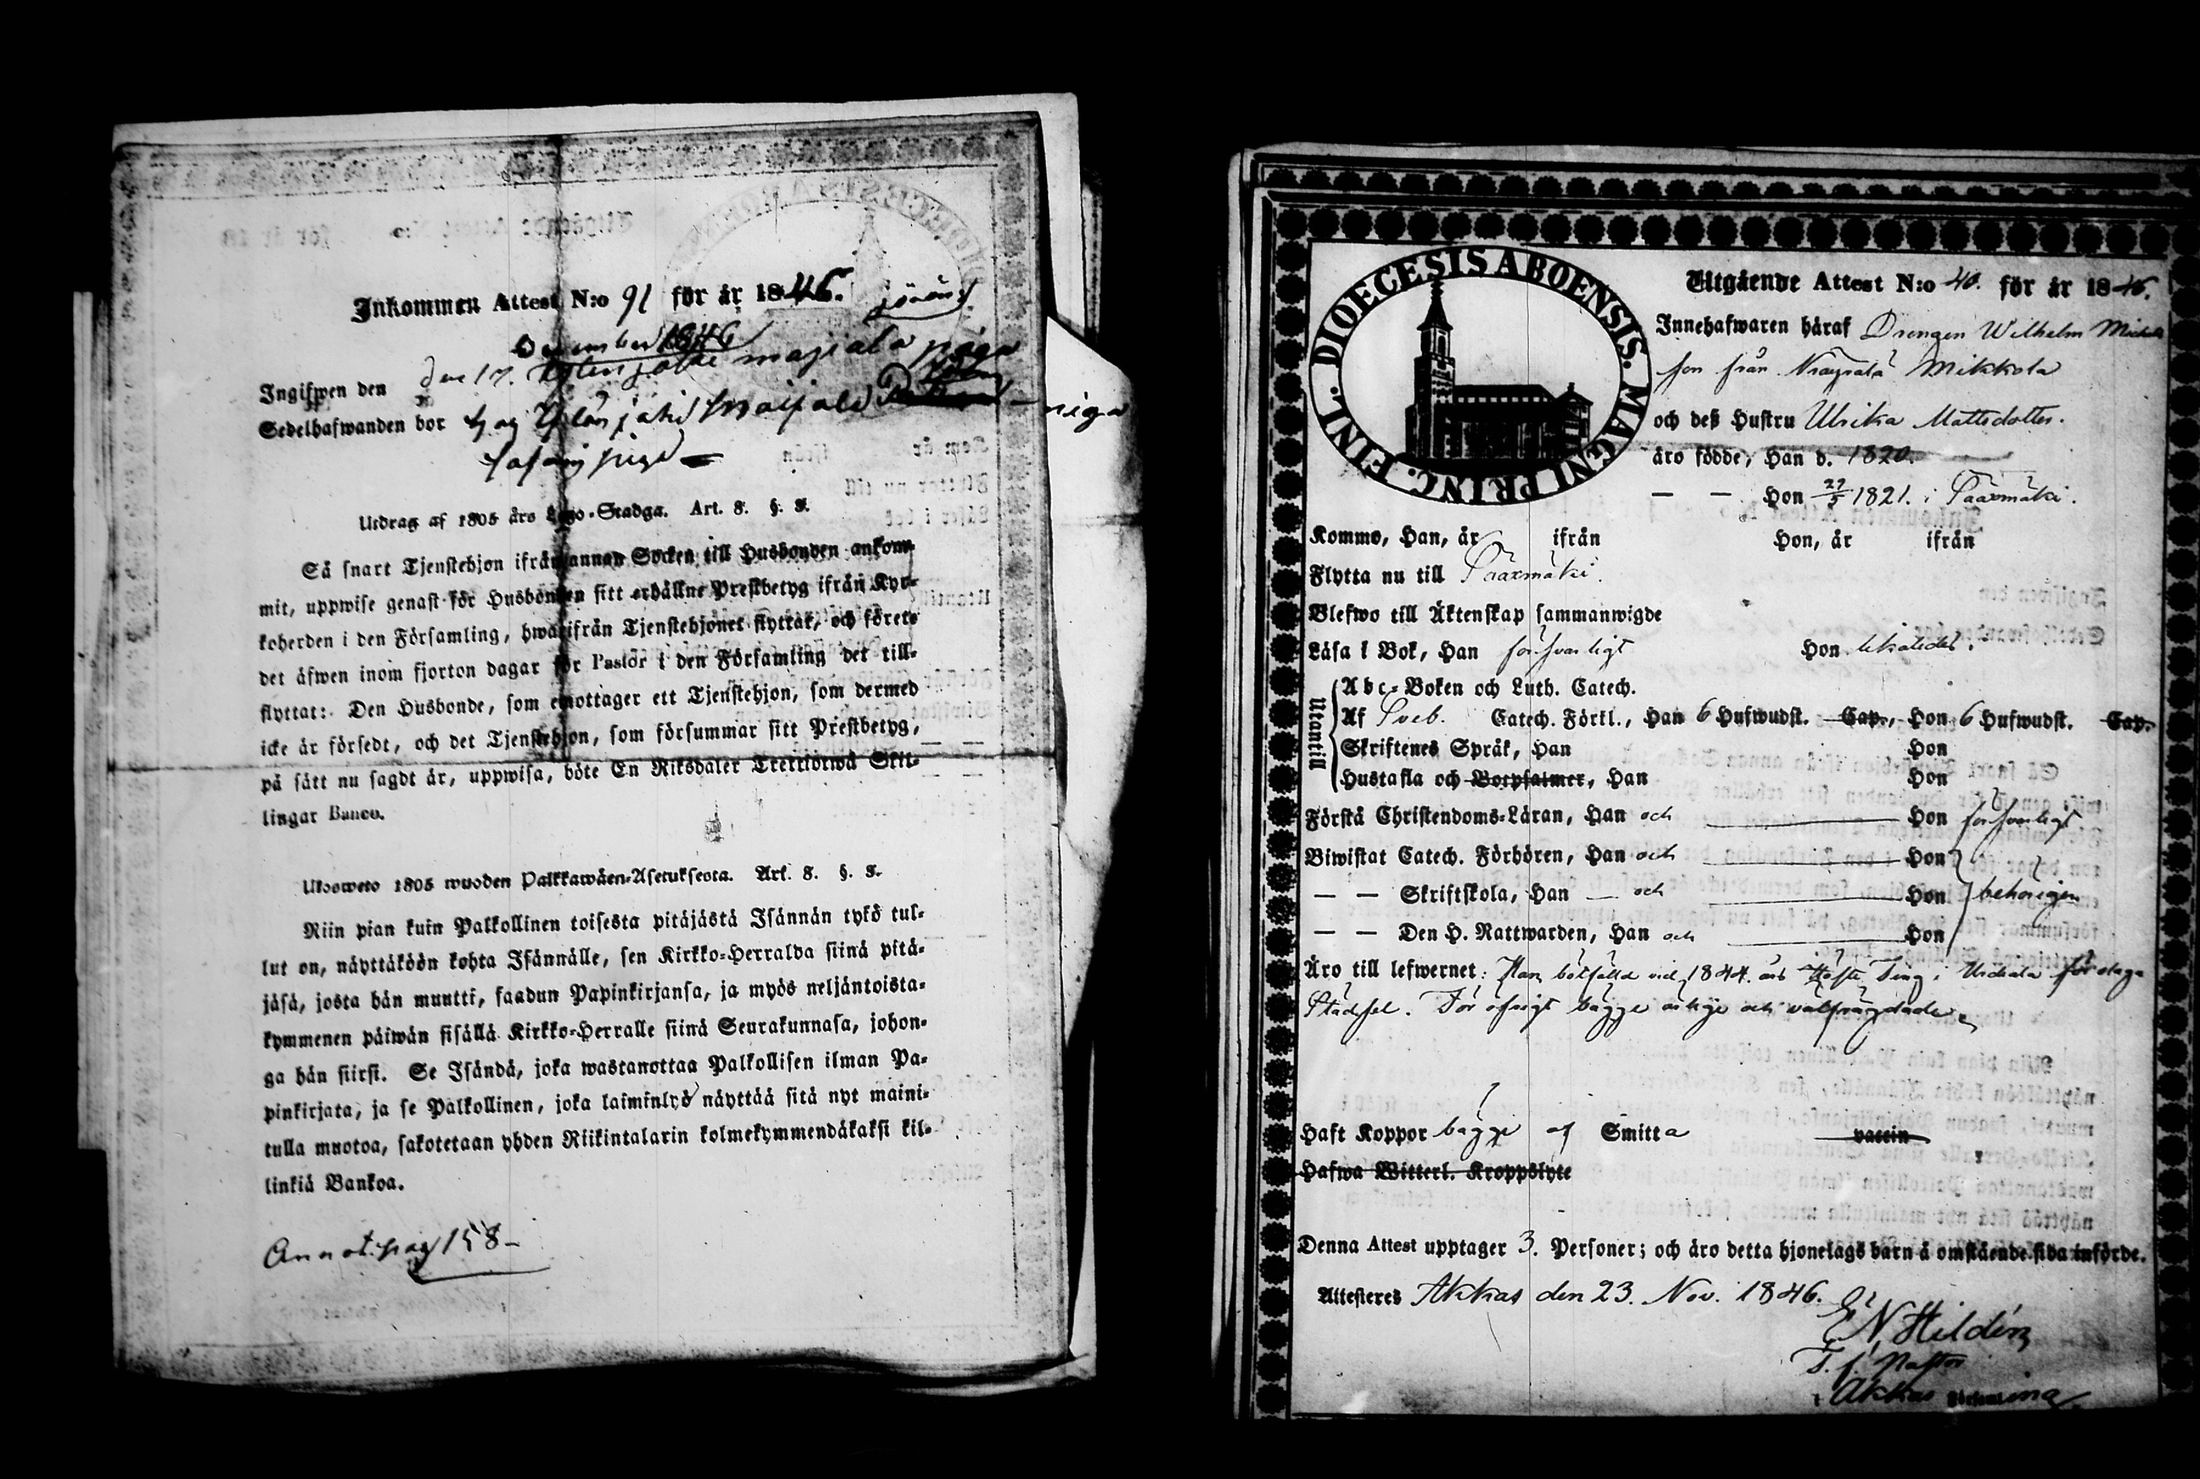 Inkommen Attest N:o 91 för år 1846.
December 1846
Ingifwen den
den 17.
Sedelhafwanden bor hos
Utdrag af 1805 års Lego-Stadga. Art. 8. §. 3.
Så snart Tjenstehjon ifrån annan Socken till Husbonden ankom-
mit, uppwise genast för Husbonden sitt erhållne Prestbetyg ifrån Kyr-
koherden i den Församling, hwarifrån Tjenstehjonet flyttat, och förete
det äfwen inom fjorton dagar för Pastor i den Församling det till-
flyttat: Den Husbonde, som emottager ett Tjenstehjon, som dermed
icke är försedt, och det Tjenstehjon, som försummar sitt Prestbetyg,
på sätt nu sagdt är, uppwisa, böte En Riksdaler Trettiotwå Skil-
lingar Banco.
Ulosweto 1805 wuoden Palkkawäen-Asetuksesta. Art. 8. §. 3.
Niin pian kuin Palkollinen toisesta pitäjästä Isännän tykö tul-
lut on, näyttäköön kohta Isännälle, sen Kirkko-Herralda siinä pitä-
jäsä, josta hän muutti, saadun Papinkirjansa, ja myös neljäntoista-
kymmenen päiwän sisällä Kirkko-Herralle siinä Seurakunnasa, johon-
ga hän siirsi. Se Isändä, joka wastanottaa Palkollisen ilman Pa-
pinkirjata, ja se Palkollinen, joka laiminlyö näyttää sitä nyt maini-
tulla muotoa, sakotetaan yhden Riikintalarin kolmekymmendäkaksi kil-
linkiä Bankoa.
Annot. pag 158-
DIOECESIS ABOENSIS. MAGNI PRINC. FINL.
Utgående Attest N:o 40. för år 1846.
Innehafwaren häraf Drengen Wilhelm Michels
son från Mikkola
och deß Hustru Ulrika Mattsdotter.
äro födde, Han d. 1820.
— — Hon 27/5 1821. i Sääxmäki.
Kommo, Han, år ifrån Hon, år ifrån
Flytta nu till Sääxmäki.
Blefwo till Äktenskap sammanwigde
Läsa i Bok, Han försvarligt Hon likaledes.
Utantill
Abc-Boken och Luth. Catech.
Af Sveb. Catech. Förkl., Han 6 Hufwudst. Cap., Hon 6 Hufwudst. Cap.
Skriftenes Språk, Han Hon
Hustafla och Botpsalmer, Han Hon
Förstå Christendoms-Läran, Han och Hon försvarligt
Biwistat Catech. Förhören, Han och Hon
— — Skriftskola, Han — och Hon behörigen
— — Den H. Nattwarden, Han och Hon
Äro till lefwernet: Han bötfälld vid 1844 års Höste Ting i Urdiala för olaga
Städsel. För öfrigt bägge ärlige och välfrägdade.
Haft Koppor bägge af Smitta vaccin
Hafwa Witterl. Kroppslyte
Denna Attest upptager 3. Personer; och äro detta hjonelags barn å omstående sida införde.
Attesteres Akkas den 23. Nov. 1846.
E. N. Hildén
T. f. Pastor
i Akkas Församling